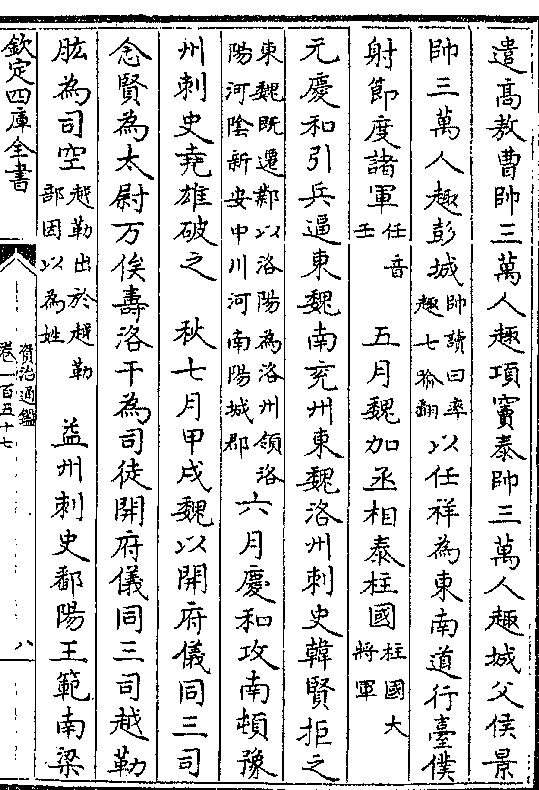 遣髙敖曹帥三萬人趣項竇泰帥三萬人趣城父侯景
帥三萬人趣彭城帥讀曰率趣七喻翻以任祥為東南道行臺僕
射節度諸軍任音壬　五月魏加丞相泰柱國柱國大將軍
元慶和引兵逼東魏南兖州東魏洛州刺史韓賢拒之
東魏既遷鄴以洛陽為洛州領洛陽河陰新安中川河南陽城郡六月慶和攻南頓豫
州刺史堯雄破之　秋七月甲戌魏以開府儀同三司
念賢為太尉万俟壽洛干為司徒開府儀同三司越勒
肱為司空越勒出於越勒部因以為姓　益州刺史鄱陽王範南梁
欽定四庫全書
資治通鑑
卷一百五十七
八